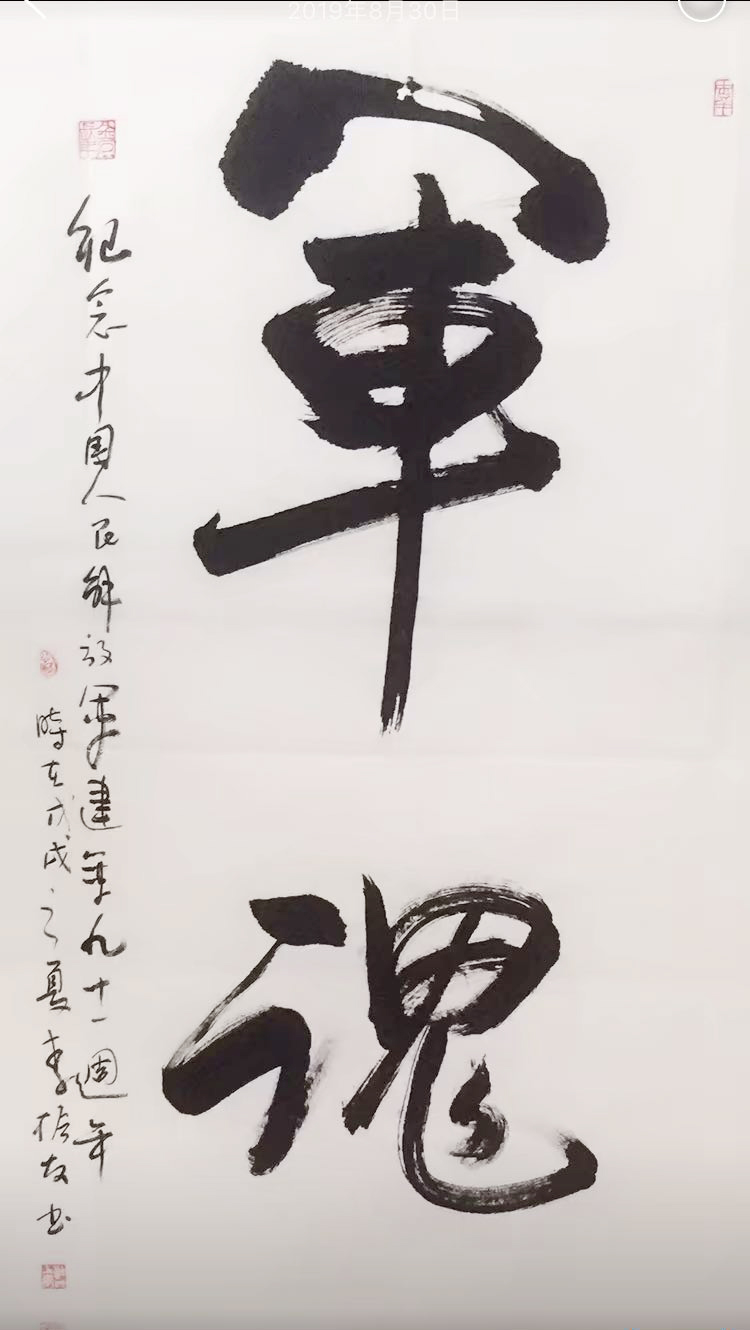 2019年8月30日
軍魂
紀念中國人民解放軍建軍九十一週年
時在戊戌之夏李友书